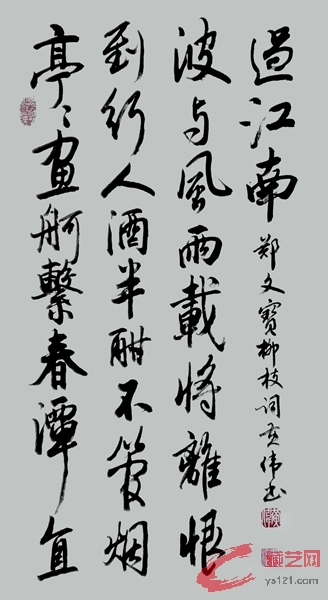 亭〻畫舸繫春潭直
到行人酒半酣不管烟
波与風雨載将離恨
過江南
郑文寶柳枝词黄伟书
藏艺网
ys121.com